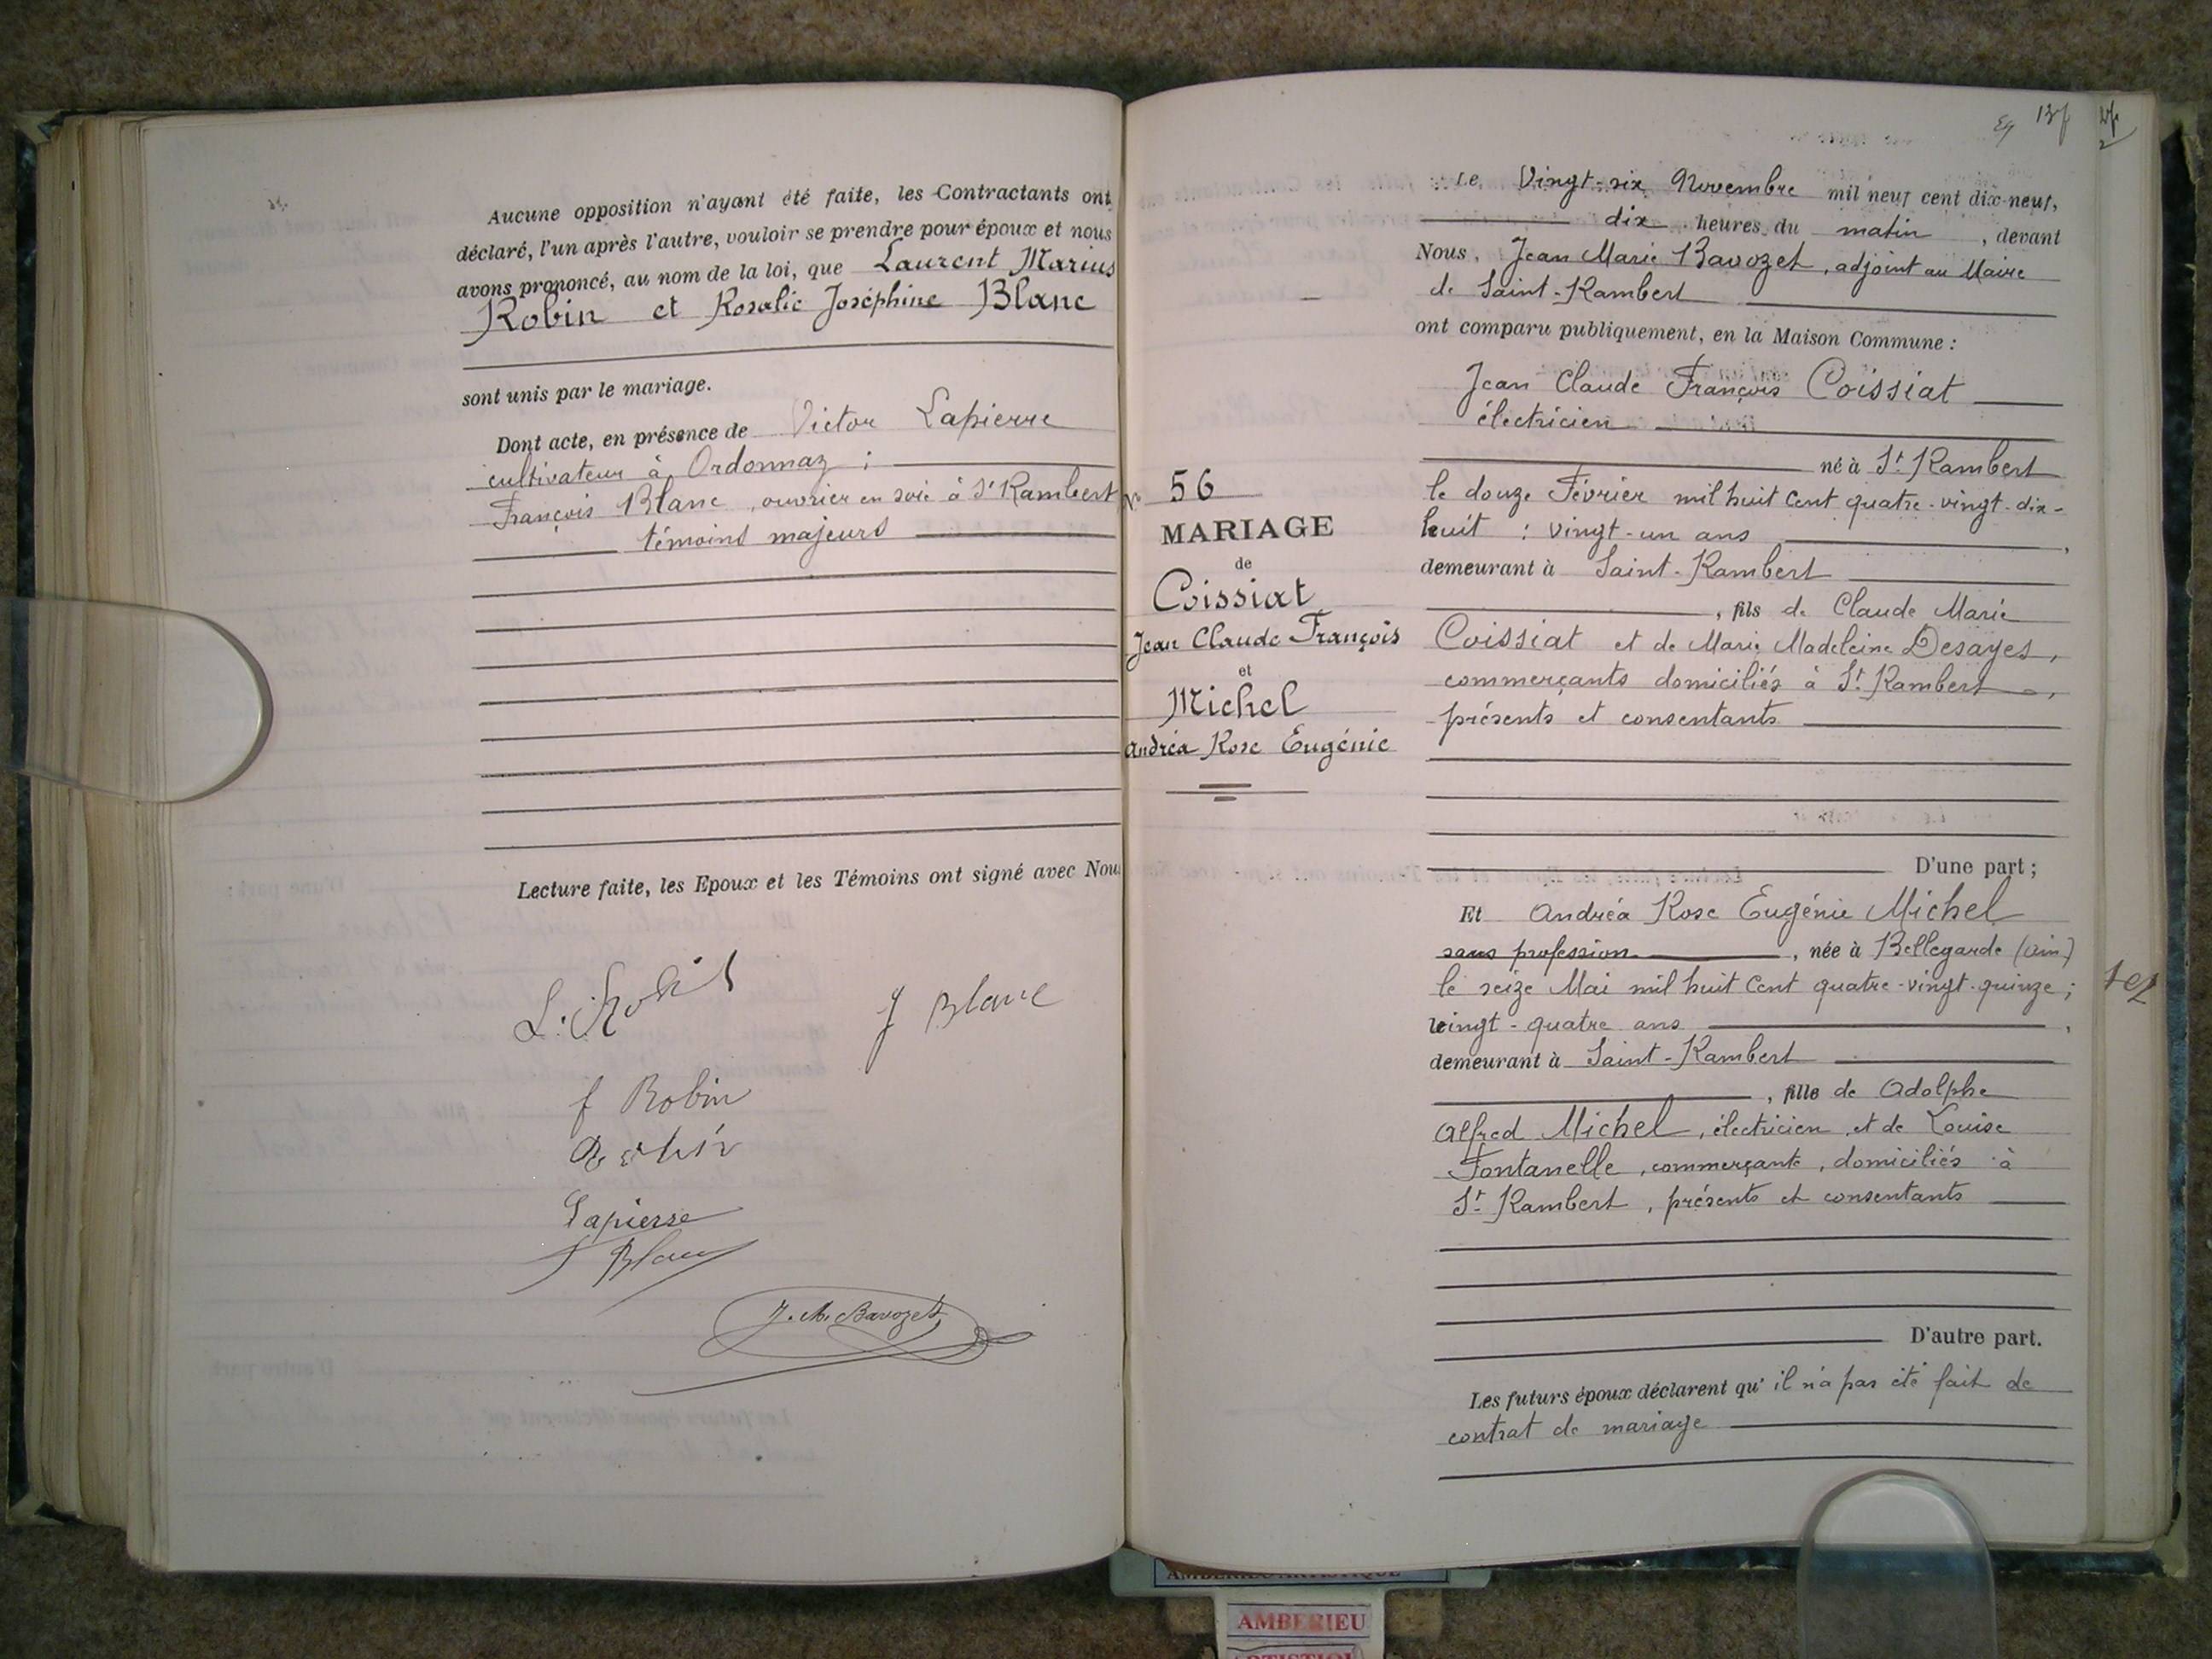 Aucune opposition n'ayant été faite, les Contractants ont
déclaré, l'un après l'autre, vouloir se prendre pour époux et nous
avons prononcé, au nom de la loi, que Laurent Marius
Robin et Rosalie Joséphine Blanc
sont unis par le mariage.
Dont acte, en présence de Victor Lapierre
cultivateur à Ordonnaz ;
François Blanc, ouvrier en soie à St Rambert
témoins majeurs
Lecture faite, les Epoux et les Témoins ont signé avec Nous
L. Robin
J Blanc
f Robin
Robin
Lapierre
f Blanc
J. M. Bavozet
N° 56
MARIAGE
de
Coissiat
Jean Claude François
et
Michel
Andréa Rose Eugénie
Le Vingt-six Novembre mil neuf cent dix-neuf,
dix heures du matin, devant
Nous, Jean Marie Bavozet, adjoint au Maire
de Saint-Rambert
ont comparu publiquement, en la Maison Commune :
Jean Claude François Coissiat
électricien
né à St. Rambert
le douze Février mil huit cent quatre-vingt-dix-
huit : vingt-un ans,
demeurant à Saint-Rambert
, fils de Claude Marie
Coissiat et de Marie Madeleine Desayes,
commerçants domiciliés à St. Rambert,
présents et consentants
D'une part ;
Et Andréa Rose Eugénie Michel
sans profession, née à Bellegarde (Ain)
le seize Mai mil huit cent quatre-vingt-quinze ;
vingt-quatre ans,
demeurant à Saint-Rambert
, fille de Adolphe
Alfred Michel, électricien, et de Louise
Fontanelle, commerçante, domiciliés à
St. Rambert, présents et consentants
D'autre part.
Les futurs époux déclarent qu'il n'a pas été fait de
contrat de mariage
AMBERIEU ARTISTIQUE
AMBERIEU